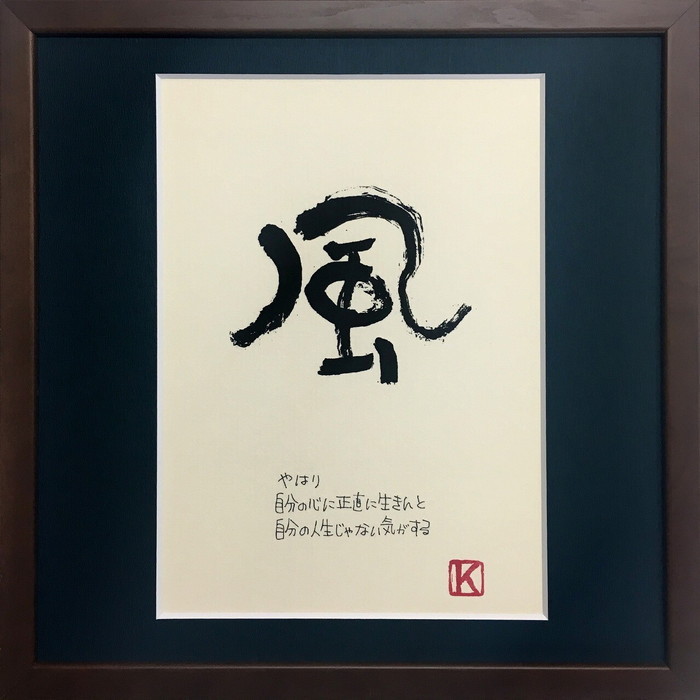 風
やはり
自分の心に正直に生きんと
自分の人生じゃない気がする
K